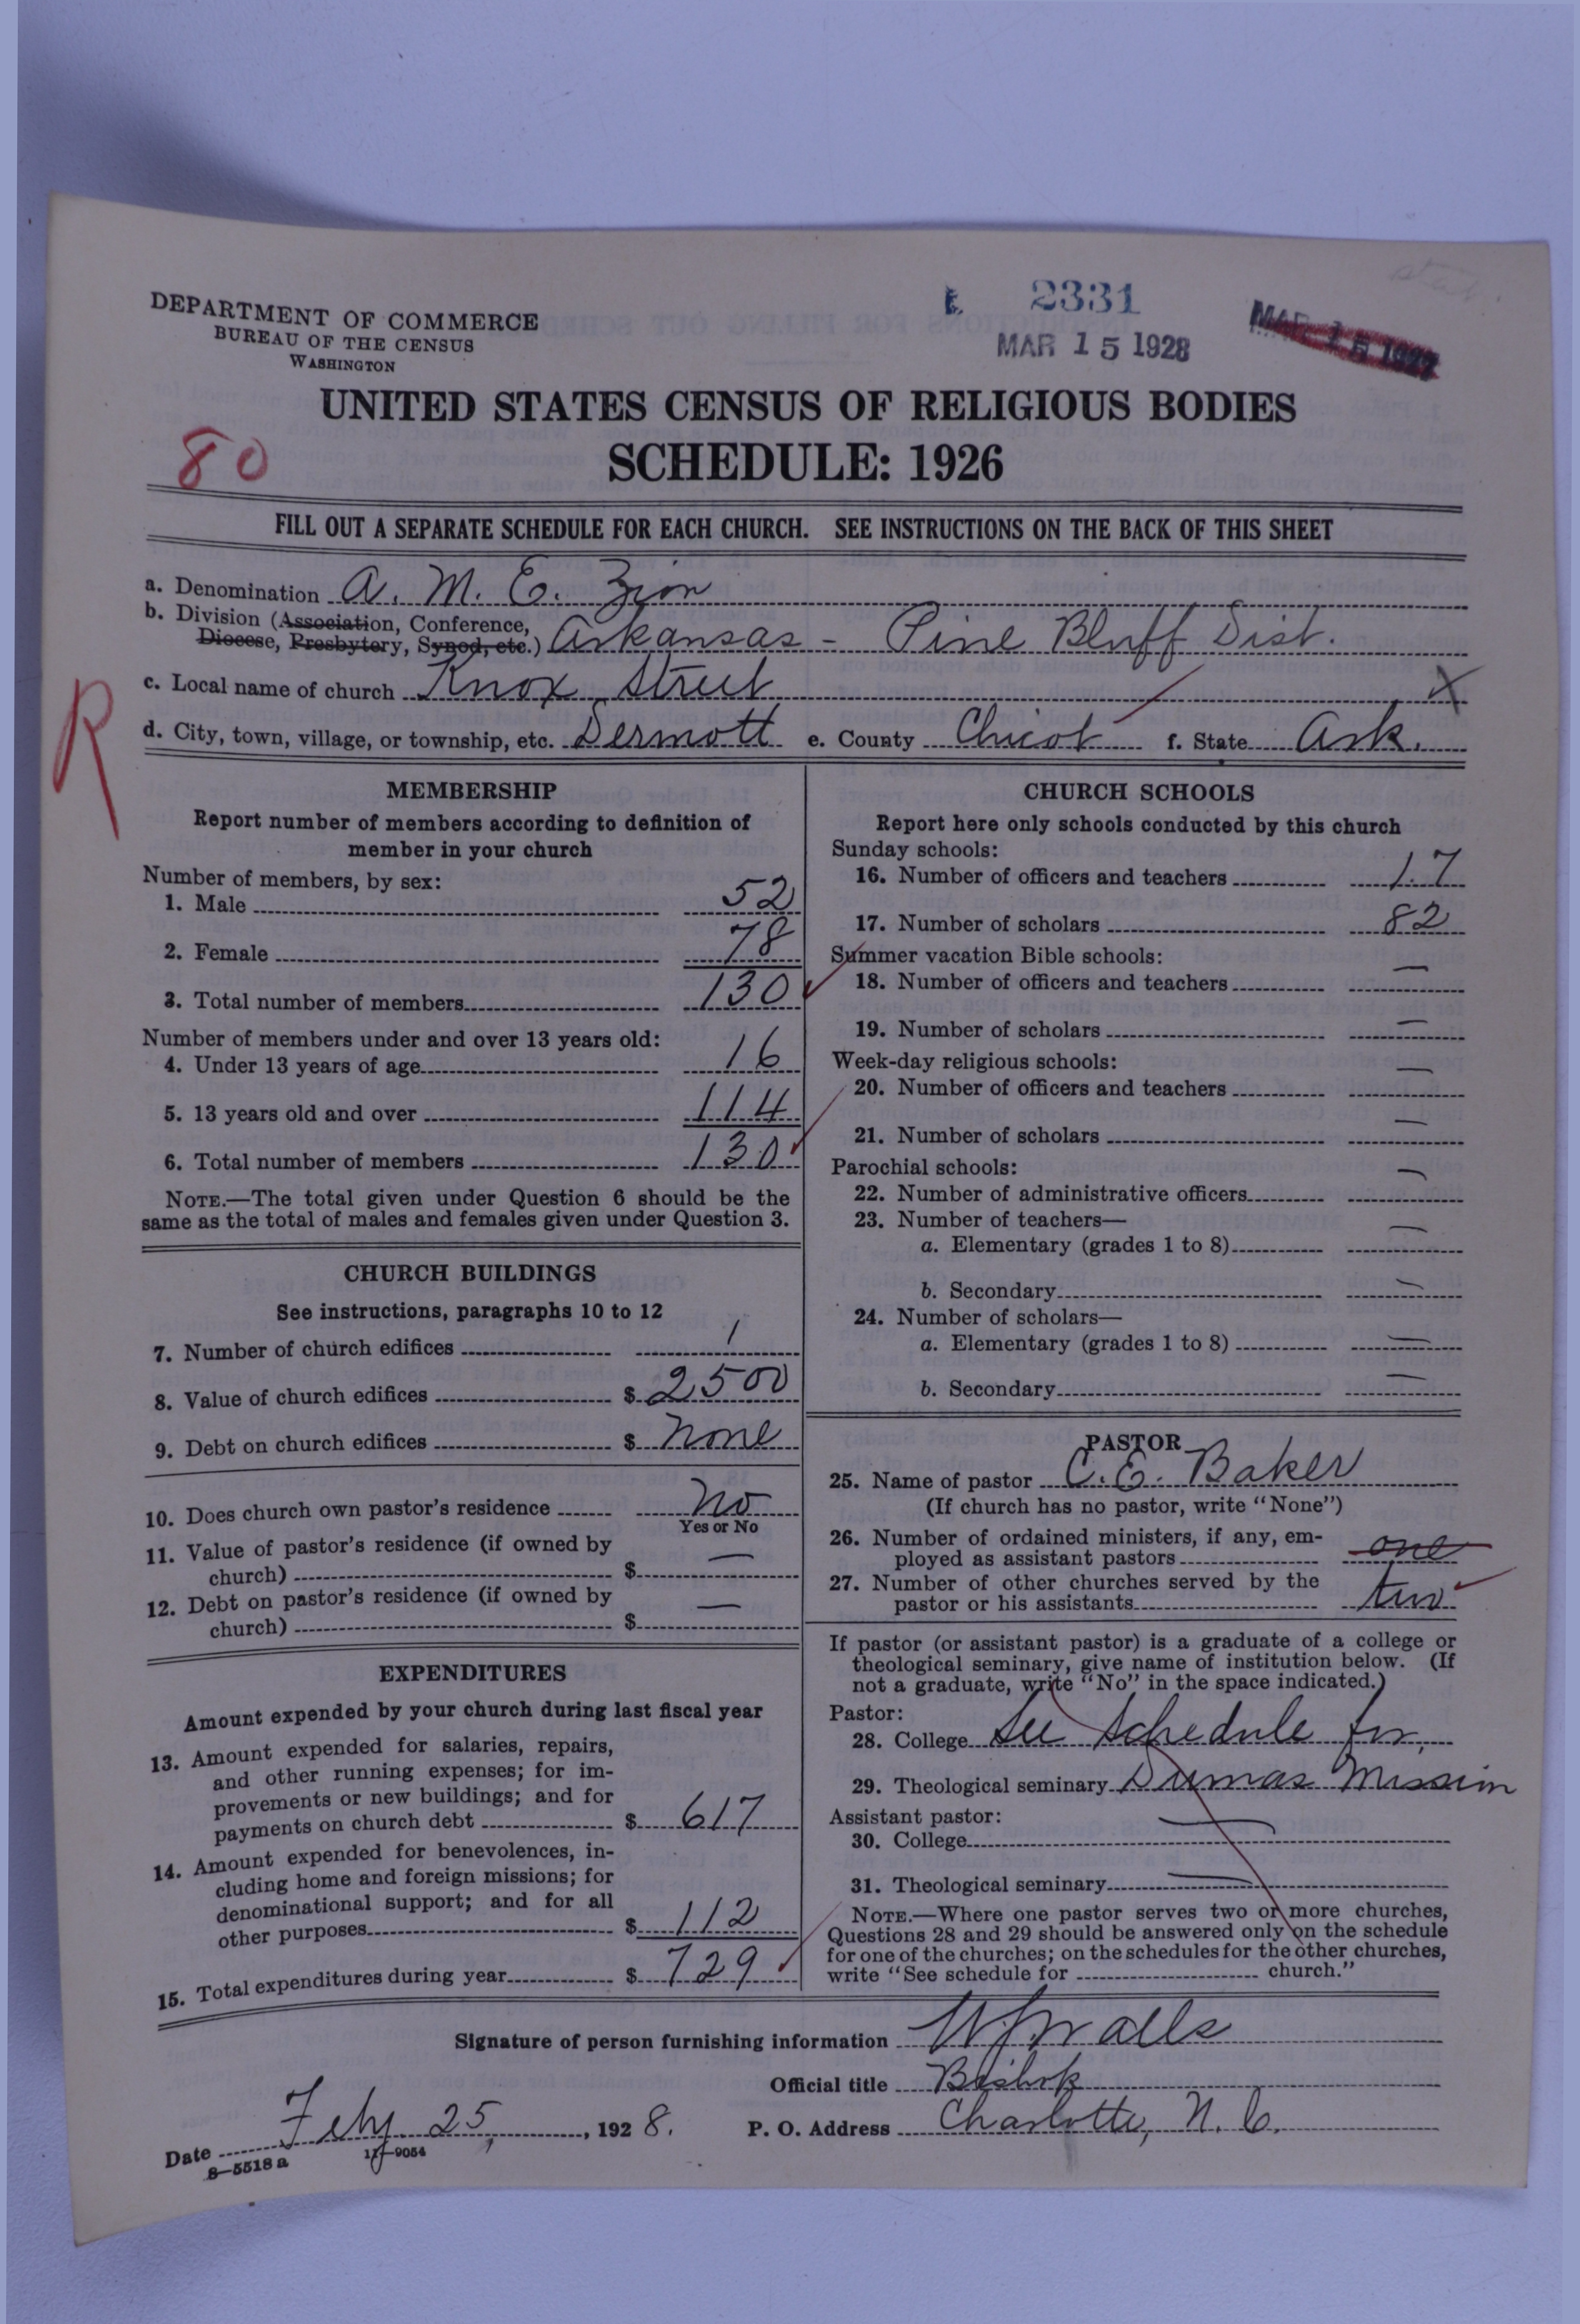 DEPARTMENT OF COMMERCE
BUREAU OF THE CENSUS
WASHINGTON
2331
MAR 15 1928
MAR 15 1927
UNITED STATES CENSUS OF RELIGIOUS BODIES
80
SCHEDULE: 1926
FILL OUT A SEPARATE SCHEDULE FOR EACH CHURCH. SEE INSTRUCTIONS ON THE BACK OF THIS SHEET
a. Denomination A. M. E. Zion
b. Division (Association, Conference,
Diocese, Presbytery, Synod, etc.) Arkansas - Pine Bluff Dist.
c. Local name of church Knox Street X
R
d. City, town, village, or township, etc. Dermott e. County Chicot f. State Ark.
MEMBERSHIP
Report number of members according to definition of
member in your church
Number of members, by sex:
1. Male 52
2. Female 78
3. Total number of members 130
Number of members under and over 13 years old:
4. Under 13 years of age 16
5. 13 years old and over 114
6. Total number of members 130
NOTE.—The total given under Question 6 should be the
same as the total of males and females given under Question 3.
CHURCH BUILDINGS
See instructions, paragraphs 10 to 12
7. Number of church edifices 1
8. Value of church edifices $ 2500
9. Debt on church edifices $ None
10. Does church own pastor's residence No
Yes or No
11. Value of pastor's residence (if owned by
church) $ —
12. Debt on pastor's residence (if owned by
church) $ —
EXPENDITURES
Amount expended by your church during last fiscal year
13. Amount expended for salaries, repairs,
and other running expenses; for im-
provements or new buildings; and for
payments on church debt $ 617
14. Amount expended for benevolences, in-
cluding home and foreign missions; for
denominational support; and for all
other purposes $ 112
15. Total expenditures during year $ 729
CHURCH SCHOOLS
Report here only schools conducted by this church
Sunday schools:
16. Number of officers and teachers 17
17. Number of scholars 82
Summer vacation Bible schools:
18. Number of officers and teachers —
19. Number of scholars —
Week-day religious schools:
20. Number of officers and teachers —
21. Number of scholars —
Parochial schools:
22. Number of administrative officers —
23. Number of teachers—
a. Elementary (grades 1 to 8) —
b. Secondary —
24. Number of scholars—
a. Elementary (grades 1 to 8) —
b. Secondary —
PASTOR
25. Name of pastor C. E. Baker
(If church has no pastor, write "None")
26. Number of ordained ministers, if any, em-
ployed as assistant pastors one
27. Number of other churches served by the
pastor or his assistants two
If pastor (or assistant pastor) is a graduate of a college or
theological seminary, give name of institution below. (If
not a graduate, write "No" in the space indicated.)
Pastor:
28. College See Schedule for
29. Theological seminary Dumas Mission
Assistant pastor:
30. College —
31. Theological seminary —
NOTE.—Where one pastor serves two or more churches,
Questions 28 and 29 should be answered only on the schedule
for one of the churches; on the schedules for the other churches,
write "See schedule for church."
Signature of person furnishing information W. J. Walls
Official title Bishop
Date Feby. 25, 1928. P. O. Address Charlotte, N. C.
8—5518 a 11—9054